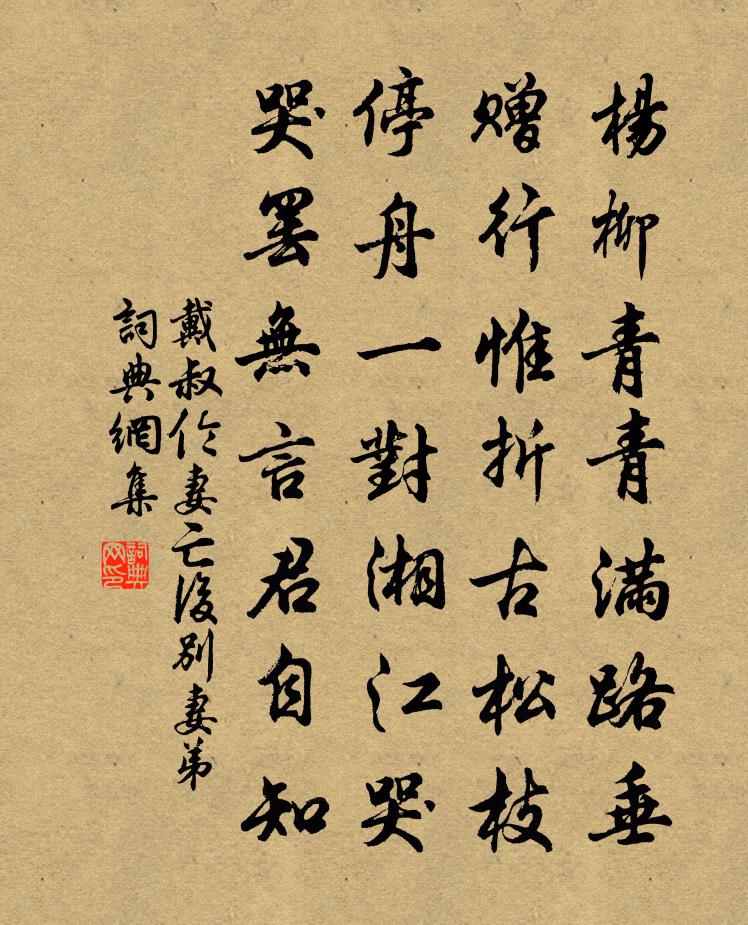 楊柳青青滿路垂
贈行惟折古松枝
停舟一對湘江哭
哭罷無言君自知
戴叔伦妻亡後別妻弟
詞典網集
詞典网印